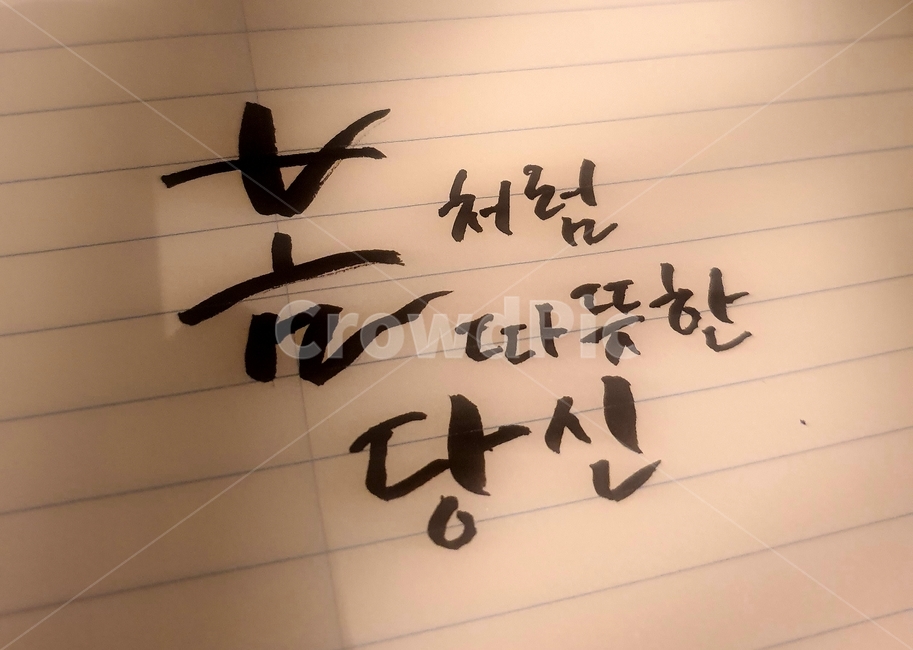 봄처럼
따뜻한
당신
CrowdPic